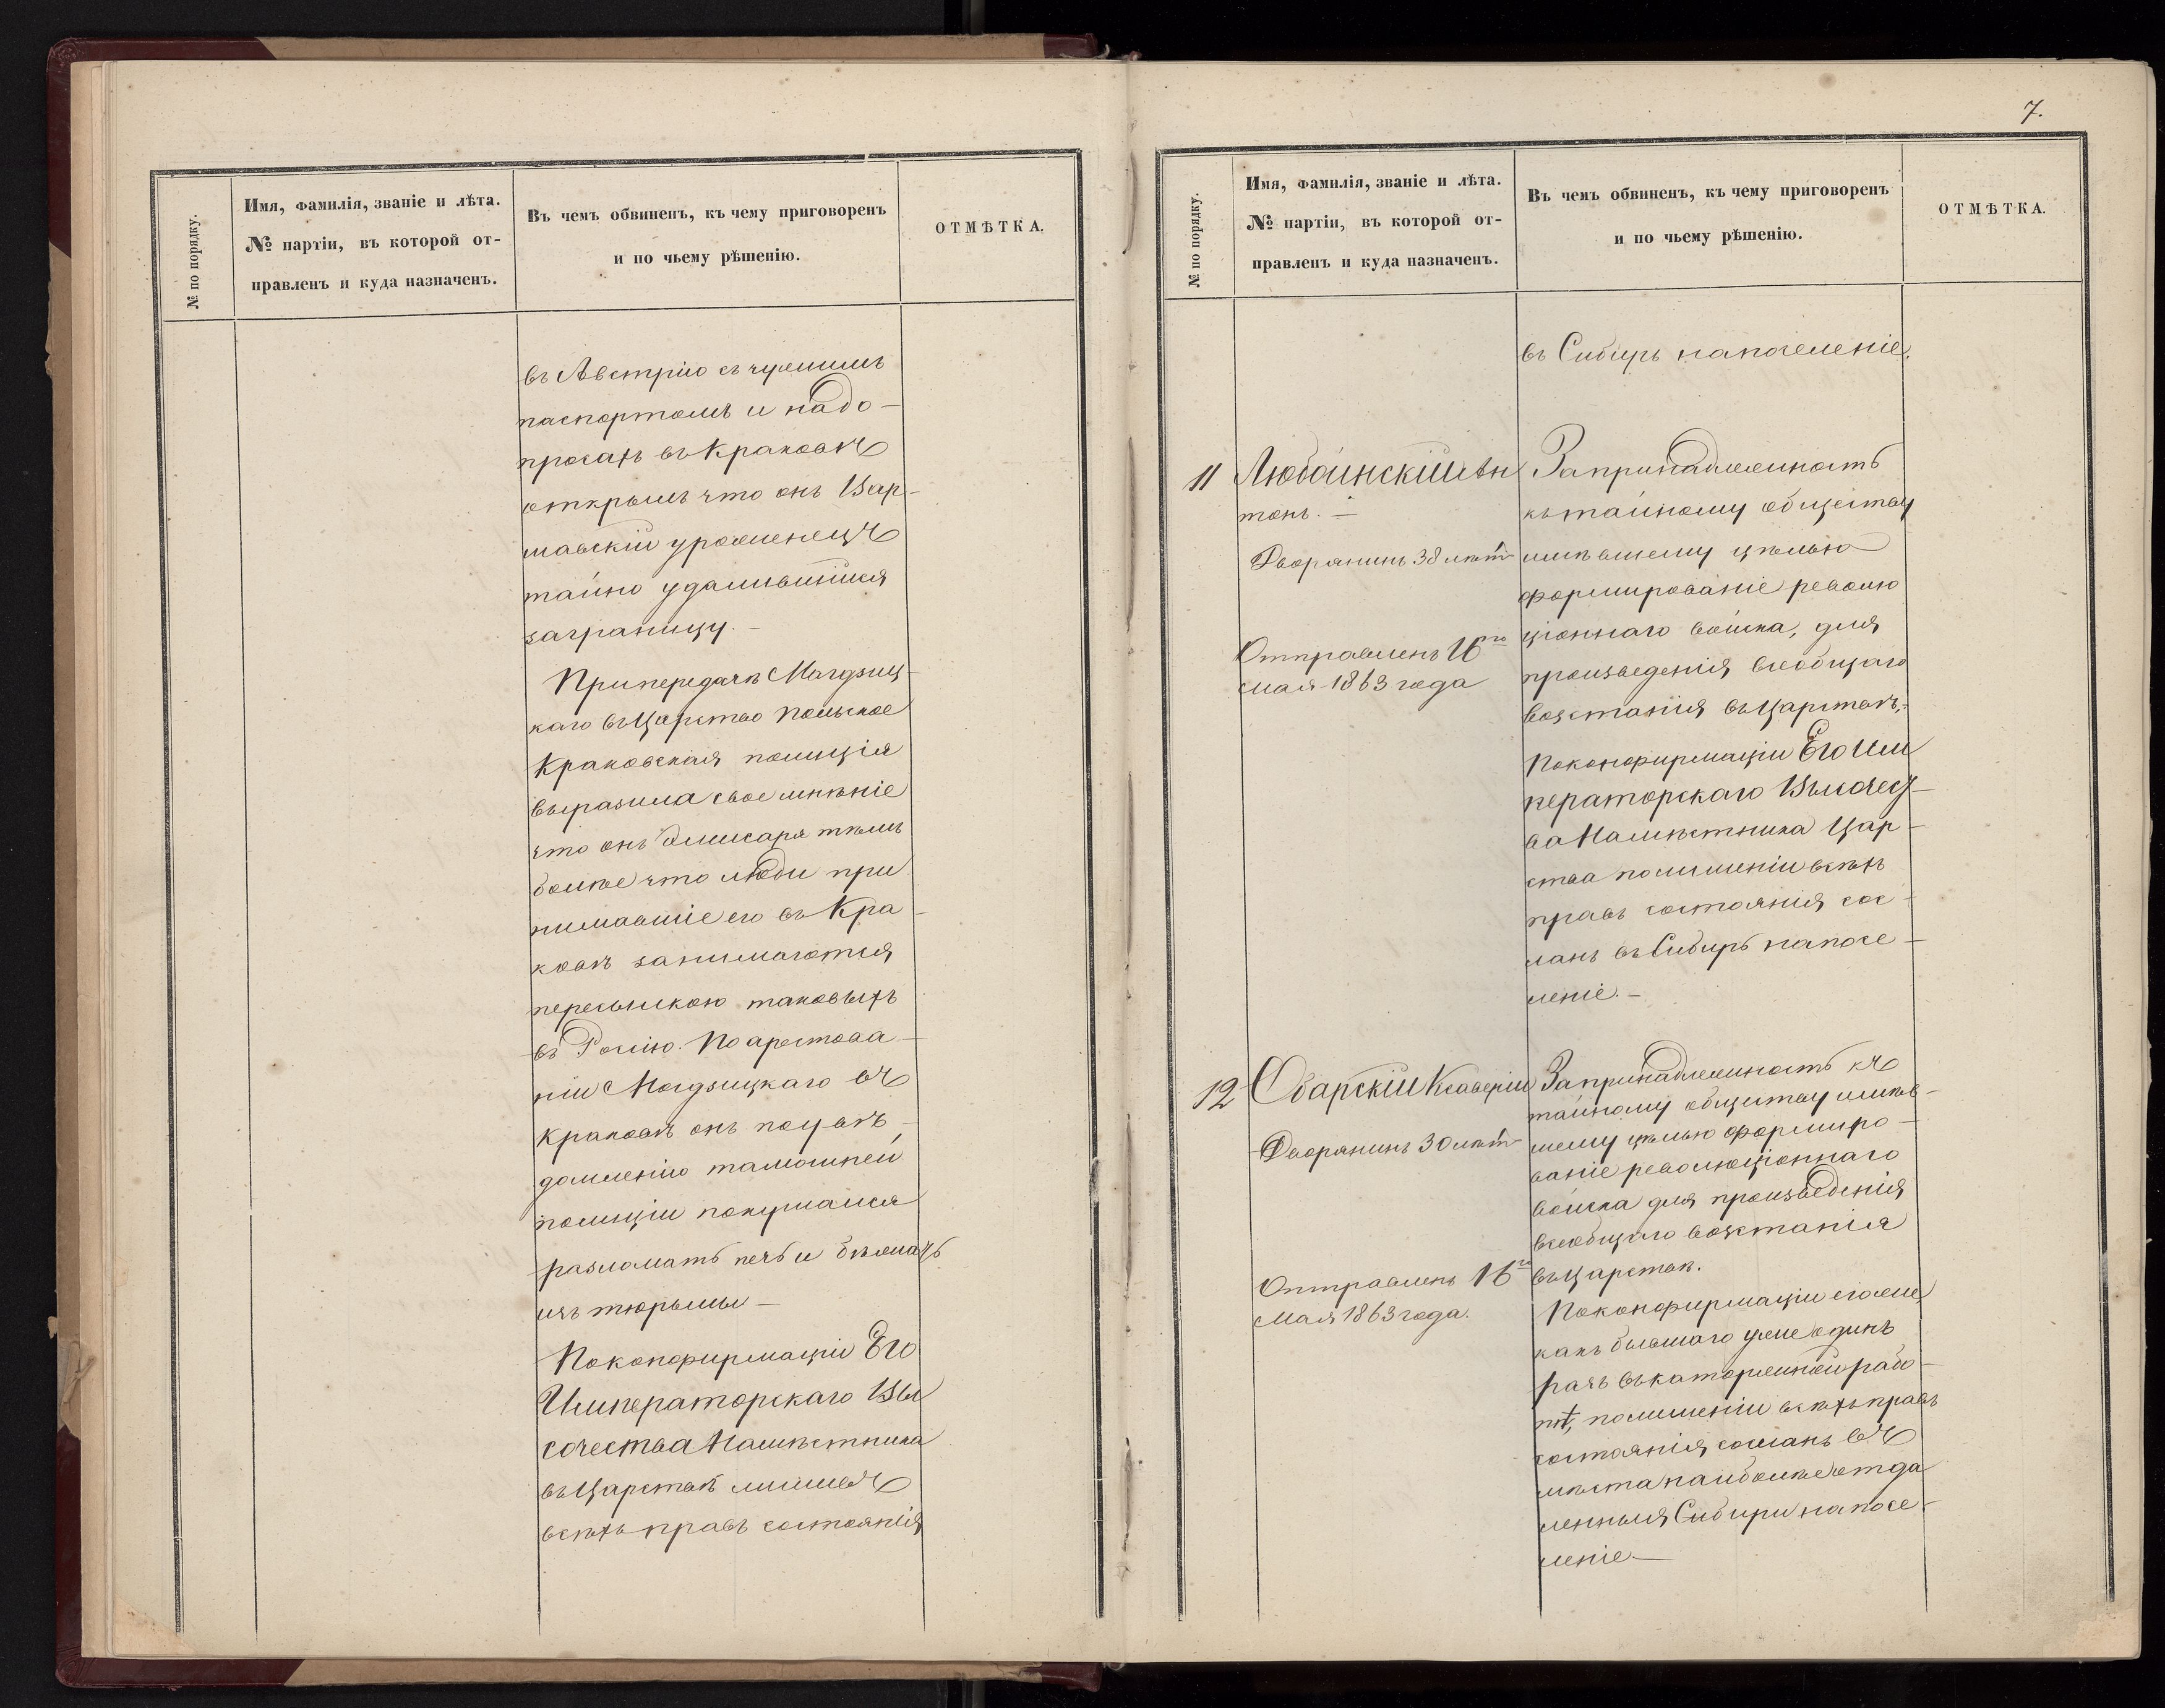 № по порядку.
Имя, фамилія, званіе и лѣта.
№ партіи, въ которой от-
правленъ и куда назначенъ.
Въ чемъ обвиненъ, къ чему приговоренъ
и по чьему рѣшенію.
ОТМѢТКА.
въ Австрію съ чужимъ
паспортомъ и на до-
просахъ въ Краковѣ
открылъ что онъ Вар-
шавскій уроженецъ
тайно удалившійся
заграницу. —
При передачѣ Могдзиц-
каго въ Царство Польское
Краковская полиція
выразила свое мнѣніе
что онъ эмисаръ тѣмъ
болѣе что люди при
нимавшіе его въ Кра-
ковѣ занимаются
пересылкою таковыхъ
въ Россію. По арестова-
ніи Могдзицкаго въ
Краковѣ онъ по увѣ-
домленію тамошней
полиціи покушался
разломать печь и бѣжать
изъ тюрьмы —
По конфирмаціи Его
Императорскаго Вы
сочества Намѣстника
въ Царствѣ лишенъ
всѣхъ правъ состоянія
7.
№ по порядку.
Имя, фамилія, званіе и лѣта.
№ партіи, въ которой от-
правленъ и куда назначенъ.
Въ чемъ обвиненъ, къ чему приговоренъ
и по чьему рѣшенію.
ОТМѢТКА.
въ Сибирь на поселеніе.
11 Любоинскій Ан
тонъ. —
Дворянинъ 38 лѣтъ
Отправленъ 16го
Мая 1863 года
За принадлежность
къ тайному обществу
имѣвшему цѣлью
формированіе револю
ціоннаго войска, для
произведенія всеобщаго
возстанія въ Царствѣ,-
По конфирмаціи Его Им
ператорскаго Высочест-
ва Намѣстника Цар-
ства по лишеніи всѣхъ
правъ состоянія сос-
ланъ въ Сибирь на посе-
леніе. —
12 Сварскій Ксаверій
Дворянинъ 30 лѣтъ
Отправленъ 16го
Мая 1863 года.
За принадлежность къ
тайному обществу имѣв-
шему цѣлью формиро-
ваніе революціоннаго
войска для произведенія
всеобщаго возстанія
въ Царствѣ.
По конфирмаціи его же,
какъ бывшаго уже одинъ
разъ въ каторжной рабо-
тѣ, по лишеніи всѣхъ правъ
состоянія, сосланъ въ
мѣста наиболѣе отда
ленныя Сибири на посе-
леніе —